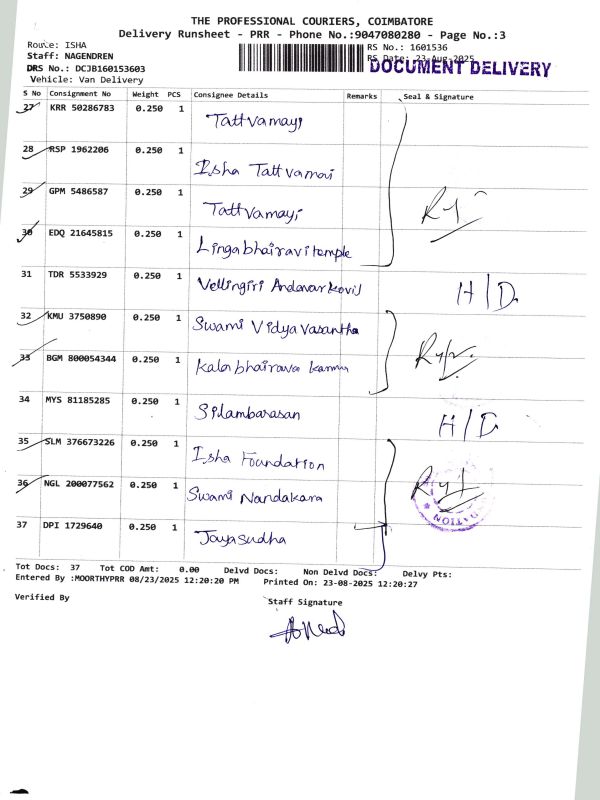 THE PROFESSIONAL COURIERS, COIMBATORE
Delivery Runsheet - PRR - Phone No.:9047080280 - Page No.:3
Route: ISHA RS No.: 1601536
Staff: NAGENDREN RS Date: 23-Aug-2025
DOCUMENT DELIVERY
DRS No.: DCJB160153603
Vehicle: Van Delivery
S No Consignment No Weight PCS Consignee Details Remarks Seal & Signature
27 KRR 50286783 0.250 1 Tattvamayi
28 RSP 1962206 0.250 1 Isha Tattvamai
29 GPM 5486587 0.250 1 Tattvamayi
30 EDQ 21645815 0.250 1 Lingabhairavi temple
31 TDR 5533929 0.250 1 Vellingiri Andavar kovil H/D
32 KMU 3750890 0.250 1 Swami Vidya Vasantha
33 BGM 800054344 0.250 1 Kalabhairava karma
34 MYS 81185285 0.250 1 Silambarasan H/D
35 SLM 376673226 0.250 1 Isha Foundation
36 NGL 200077562 0.250 1 Swami Nandakara
37 DPI 1729640 0.250 1 Jayasudha
Tot Docs: 37 Tot COD Amt: 0.00 Delvd Docs: Non Delvd Docs: Delvy Pts:
Entered By :MOORTHYPRR 08/23/2025 12:20:20 PM Printed On: 23-08-2025 12:20:27
Verified By Staff Signature